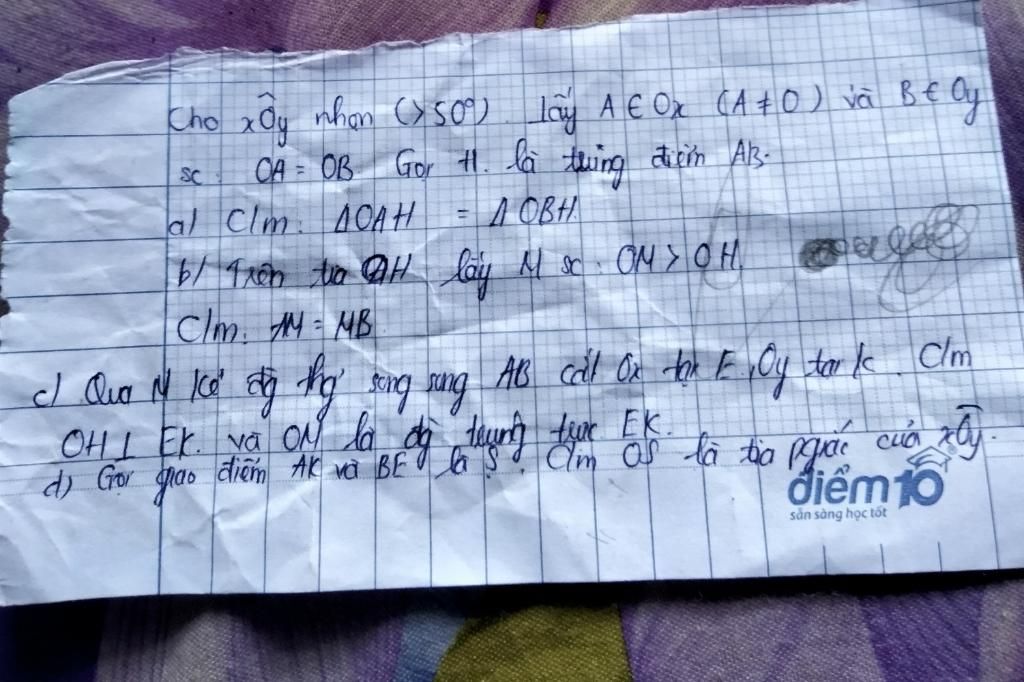 Cho xÔy nhọn (>50°). Lấy A ∈ Ox (A ≠ O) và B ∈ Oy
sc: OA = OB Gọi H. là trung điểm AB.
a) C/m: ΔOAH = ΔOBH.
b) Trên tia OH lấy M sc: OM > OH.
C/m: AM = MB
c) Qua M kẻ đg thg song song AB cắt Ox tại E, Oy tại K. C/m
OH ⊥ EK. và OM là đg trung trực EK.
d) Gọi giao điểm AK và BE là S. C/m OS là tia pgiác của xÔy.
điểm10
sẵn sàng học tốt